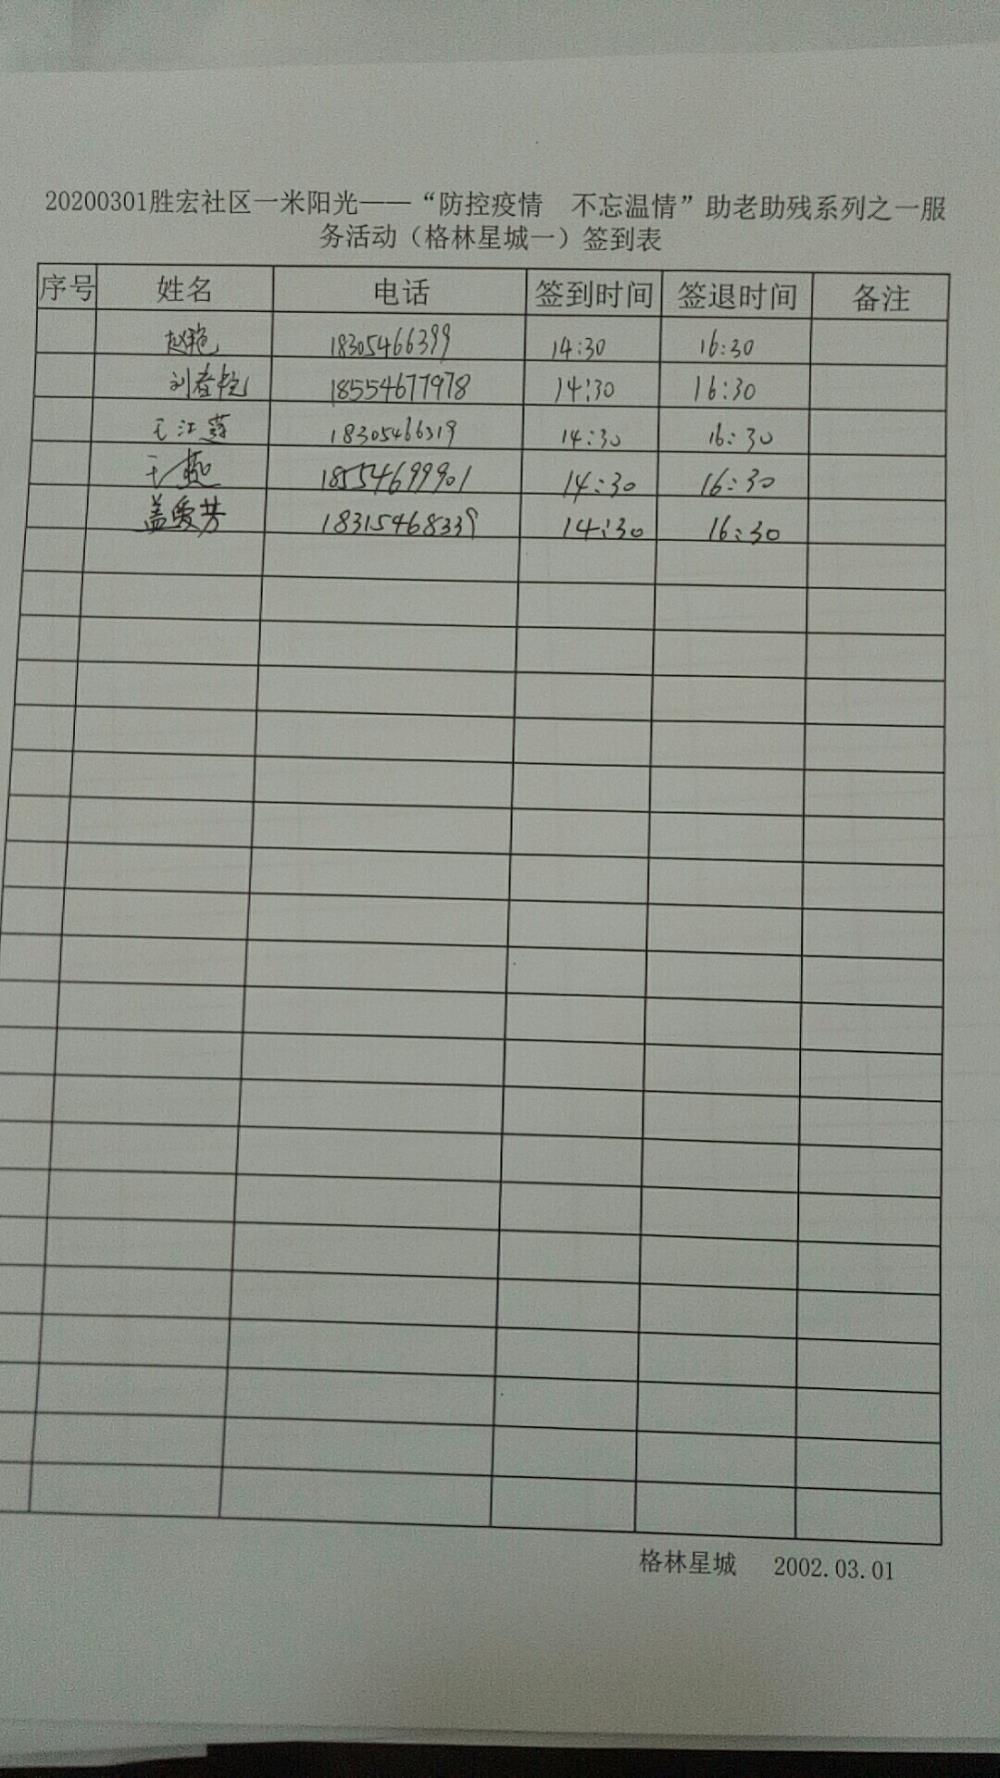 20200301胜宏社区一米阳光——“防控疫情 不忘温情”助老助残系列之一服
务活动（格林星城一）签到表
序号 姓名 电话 签到时间 签退时间 备注
赵艳 18305466399 14:30 16:30
刘春艳 18554677978 14:30 16:30
王江 18305466319 14:30 16:30
王燕 18554699901 14:30 16:30
盖爱芳 18315468339 14:30 16:30
格林星城 2002.03.01